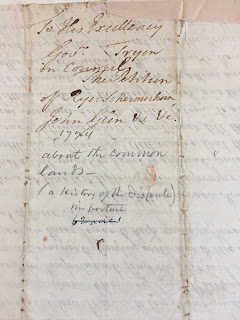 To His Excellency
Govr. Tryon
in Council
The Petition
of Ryer Schermerhorn
John Glen &c &c.
1774
about the common
lands—
(a History of the dispute)
important